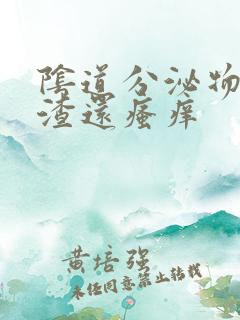 陰道分泌物
渣還瘙痒
黄培强
未任同意禁止转载